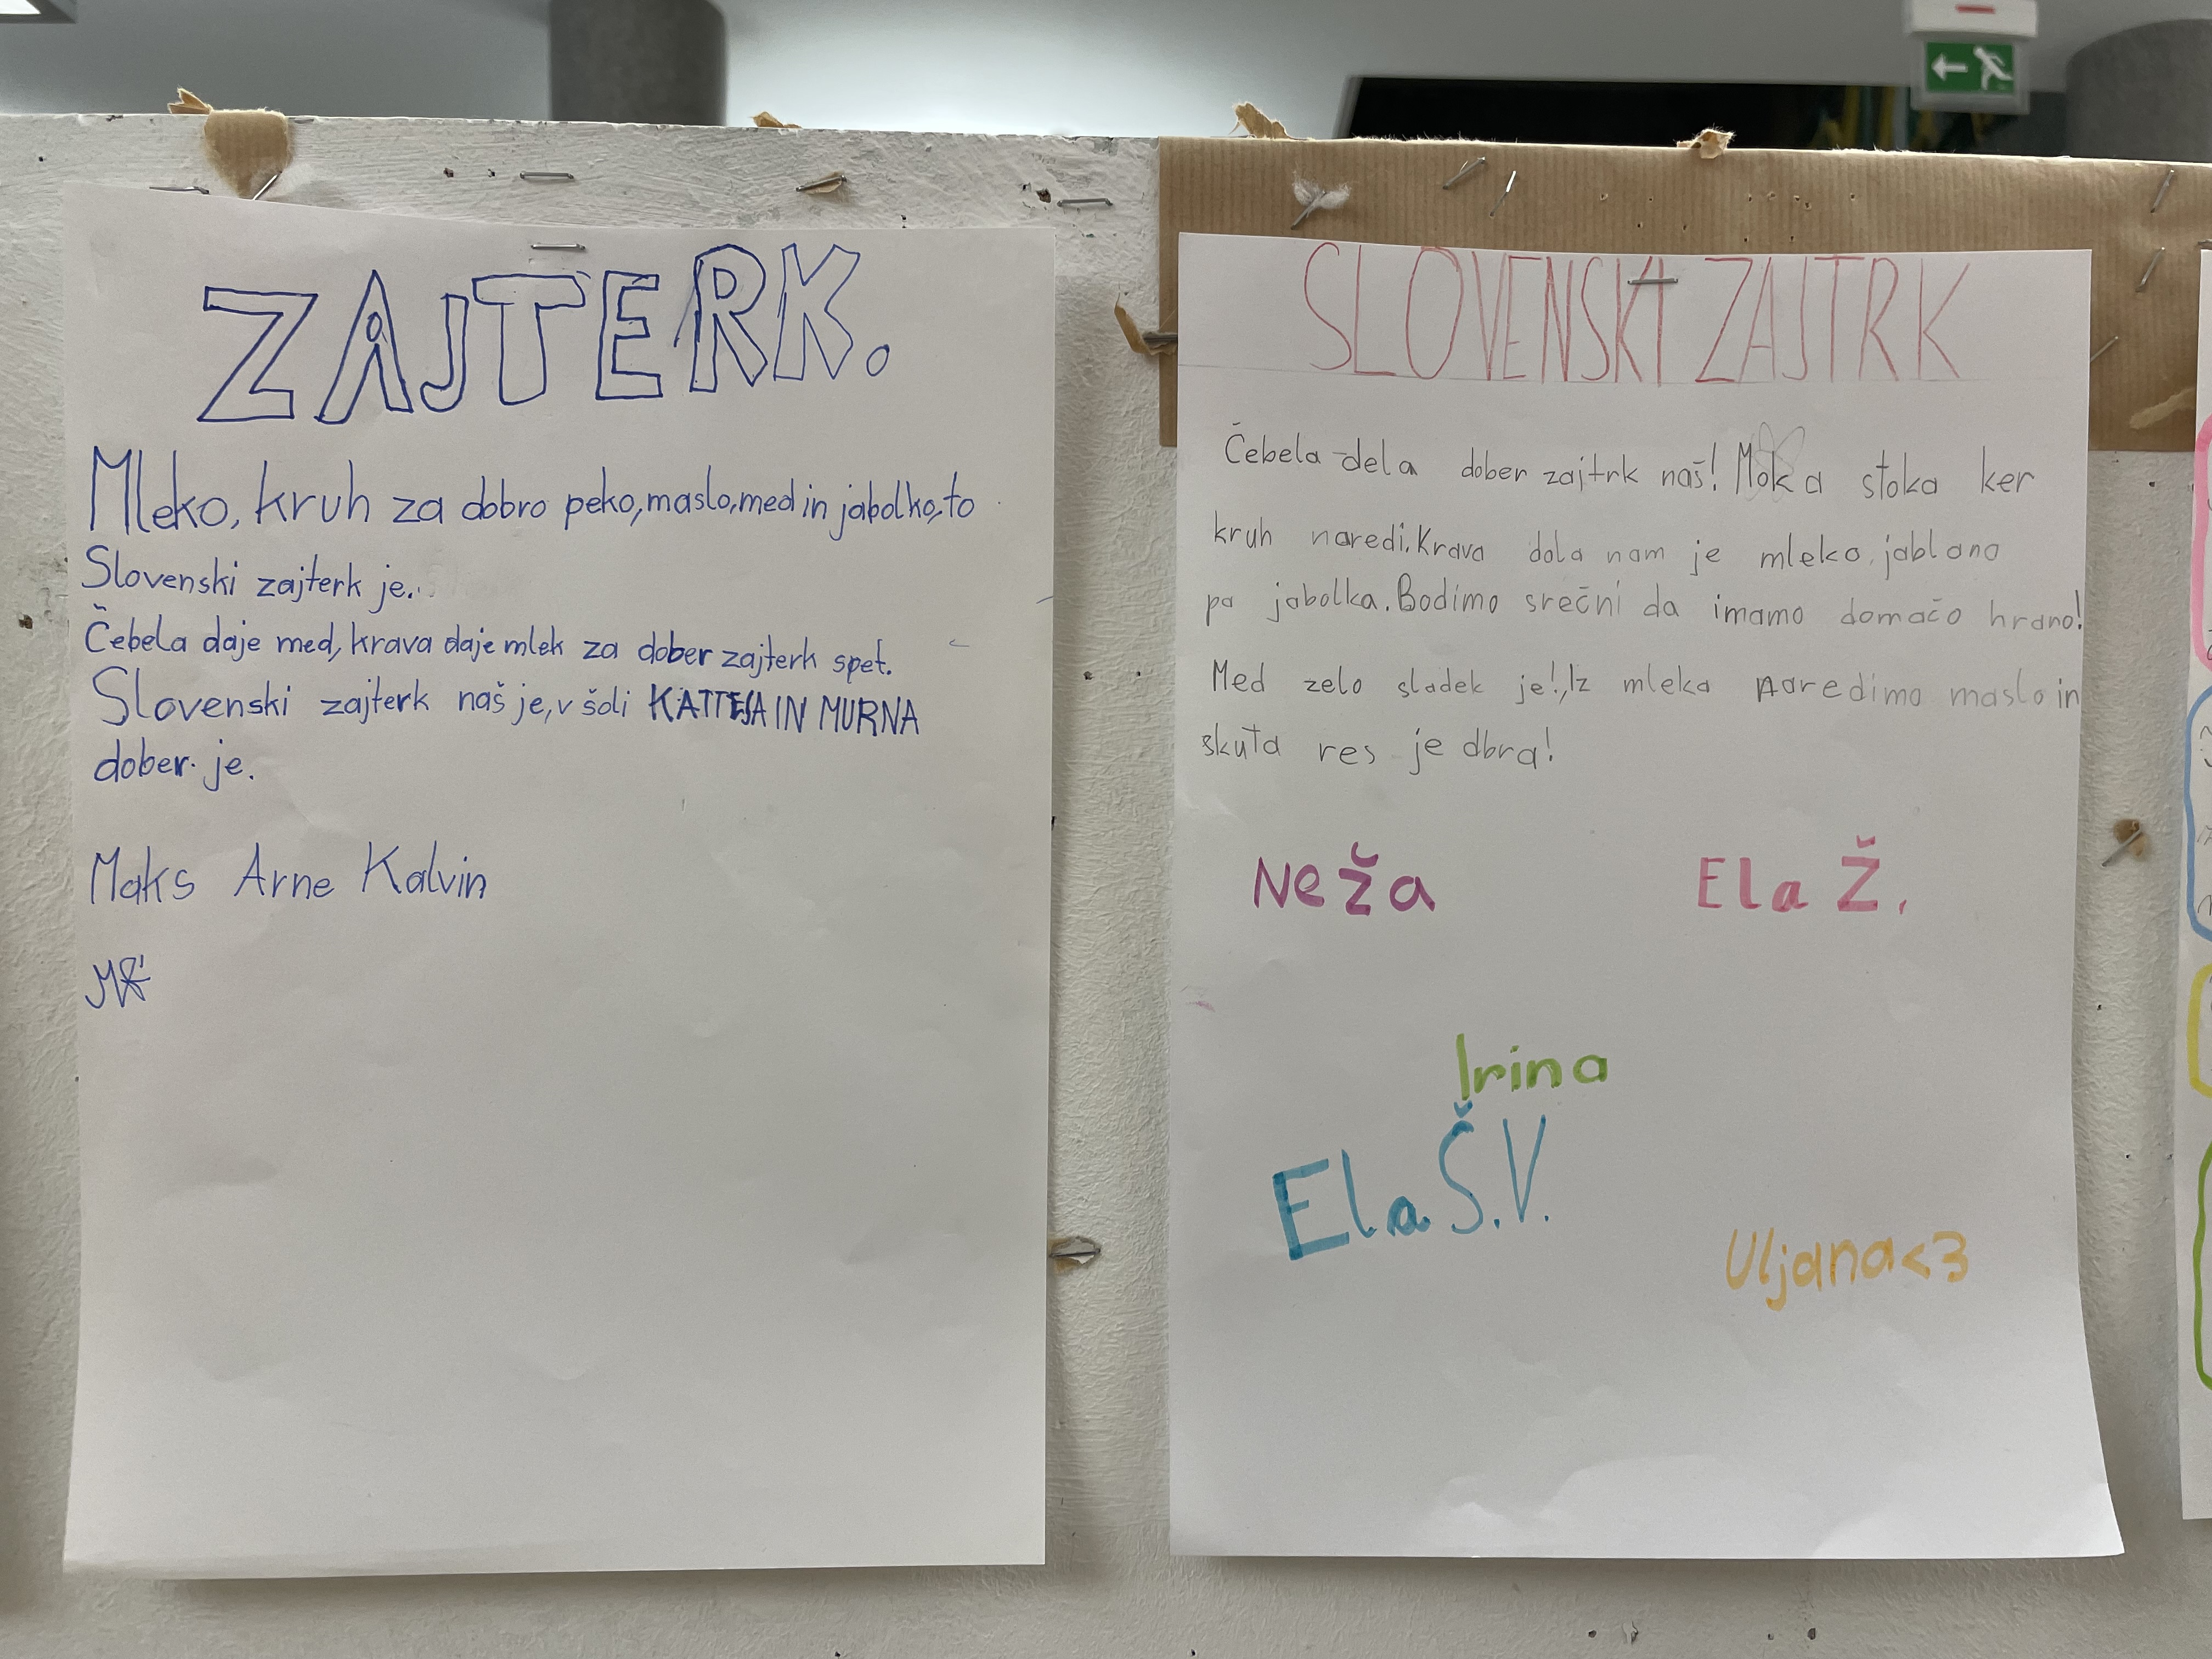 ZAJTERK.
Mleko, kruh za dobro peko, maslo, med in jabolko, to
Slovenski zajterk je.
Čebela daje med, krava daje mlek za dober zajterk spet.
Slovenski zajterk naš je, v šoli KATTEJA IN MURNA
dober je.
Maks Arne Kalvin
SLOVENSKI ZAJTRK
Čebela dela dober zajtrk naš! Moka stoka ker
kruh naredi. Krava dala nam je mleko, jablana
pa jabolka. Bodimo srečni da imamo domačo hrano!
Med zelo sladek je!, Iz mleka naredimo maslo in
skuta res je dbra!
Neža Ela Ž.
Irina
Ela Š.V.
Uljana<3